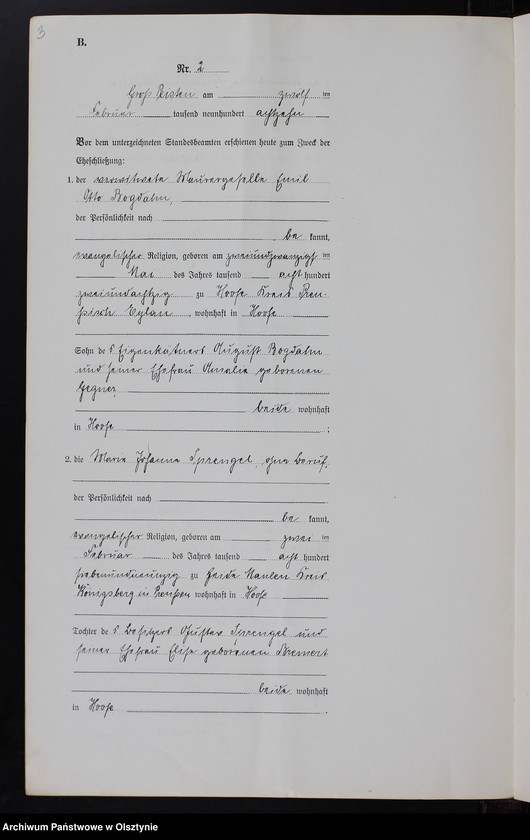 3
B.
Nr. 2
Groß Peisten am zwölf ten
Februar tausend neunhundert achtzehn
Vor dem unterzeichneten Standesbeamten erschienen heute zum Zweck der
Eheschließung:
1. der verwitwete Maurergeselle Emil
Otto Bogdahn,
der Persönlichkeit nach
be kannt,
evangelischer Religion, geboren am zweiundzwanzigsten
Mai des Jahres tausend acht hundert
zweiundachtzig zu Hoofe Kreis Preu-
ßisch Eylau, wohnhaft in Hoofe
Sohn des Eigenkätners August Bogdahn
und seiner Ehefrau Amalie geborenen
beide wohnhaft
in Hoofe ;
2. die Maria Johanna Sprengel, ohne Beruf,
der Persönlichkeit nach
be kannt,
evangelischer Religion, geboren am zwei ten
Februar des Jahres tausend acht hundert
siebenundneunzig zu Heide Maulen Kreis
Königsberg in Preußen wohnhaft in Hoofe
Tochter des Besitzers Gustav Sprengel und
seiner Ehefrau Elise geborenen
beide wohnhaft
in Hoofe .
Archiwum Państwowe w Olsztynie